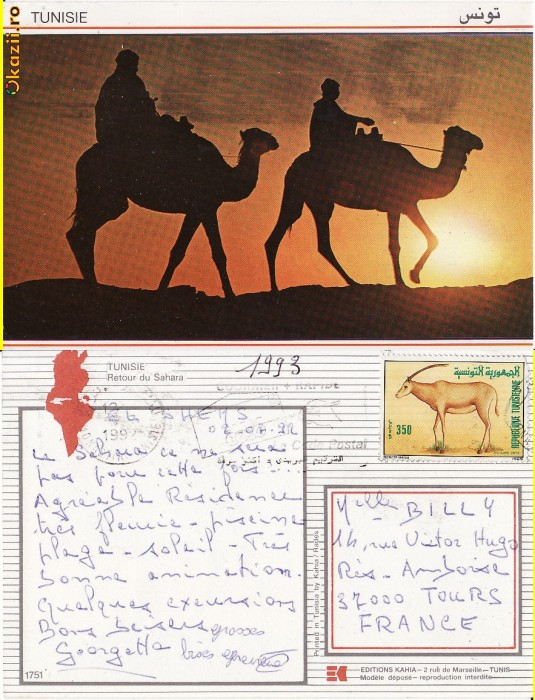 Okazii.ro
TUNISIE
تونس
TUNISIE
Retour du Sahara
1993
COURRIER + RAPIDE
Code Postal
الجمهورية التونسية
REPUBLIQUE TUNISIENNE
350
EL SHEMS
02-07-92
Le Sahara ce ne sera
pas pour cette fois...
Agréable Résidence
très fleurie - piscine
plage - soleil - Très
bonne animation.
Quelques excursions
Bons baisers grosses
Georgette bises
Melle BILLY
14, rue Victor Hugo
Rés. Amboise
37000 TOURS
FRANCE
Printed in Tunisia by Kahia
1751
EDITIONS KAHIA - 2 rue de Marseille - TUNIS
Modèle déposé - reproduction interdite